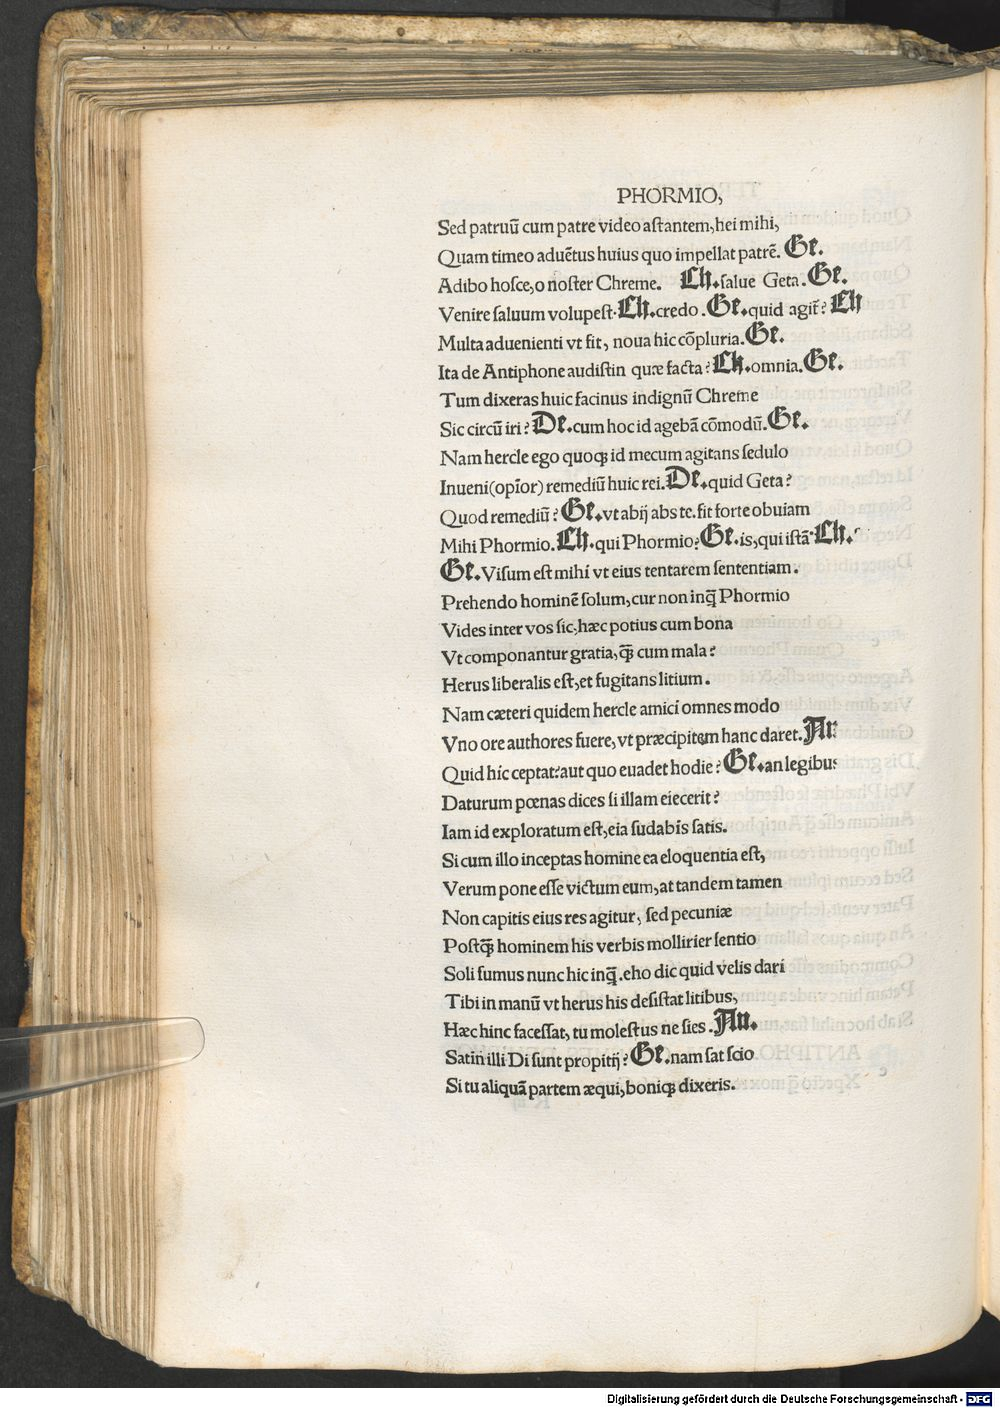 PHORMIO,
Sed patruū cum patre video astantem, hei mihi,
Quam timeo aduētus huius quo impellat patrē. Ge.
Adibo hosce, o noster Chreme. Ch. salue Geta. Ge.
Venire saluum volupest. Ch. credo. Ge. quid agit̄? Ch
Multa aduenienti vt fit, noua hic cōpluria. Ge.
Ita de Antiphone audistin quæ facta? Ch. omnia. Ge.
Tum dixeras huic facinus indignū Chreme
Sic circū iri? De. cum hoc id agebā cōmodū. Ge.
Nam hercle ego quoqꝫ id mecum agitans sedulo
Inueni (opīor) remediū huic rei. De. quid Geta?
Quod remediū? Ge. vt abij abs te. fit forte obuiam
Mihi Phormio. Ch. qui Phormio? Ge. is, qui istā. Ch.
Ge. Visum est mihi vt eius tentarem sententiam.
Prehendo hominē solum, cur non inꝗ̄ Phormio
Vides inter vos sic, hæc potius cum bona
Vt componantur gratia, ꝗ̄ cum mala?
Herus liberalis est, et fugitans litium.
Nam cæteri quidem hercle amici omnes modo
Vno ore authores fuere, vt præcipitem hanc daret. An
Quid hic ceptat? aut quo euadet hodie? Ge. an legibus
Daturum pœnas dices si illam eiecerit?
Iam id exploratum est, eia sudabis satis.
Si cum illo inceptas homine ea eloquentia est,
Verum pone esse victum eum, at tandem tamen
Non capitis eius res agitur, sed pecuniæ
Postꝗ̄ hominem his verbis mollirier sentio
Soli sumus nunc hic inꝗ̄. eho dic quid velis dari
Tibi in manū vt herus his desistat litibus,
Hæc hinc facessat, tu molestus ne sies. An.
Satin illi Di sunt propitij? Ge. nam sat scio
Si tu aliquā partem æqui, boniqꝫ dixeris.
Digitalisierung gefördert durch die Deutsche Forschungsgemeinschaft - DFG